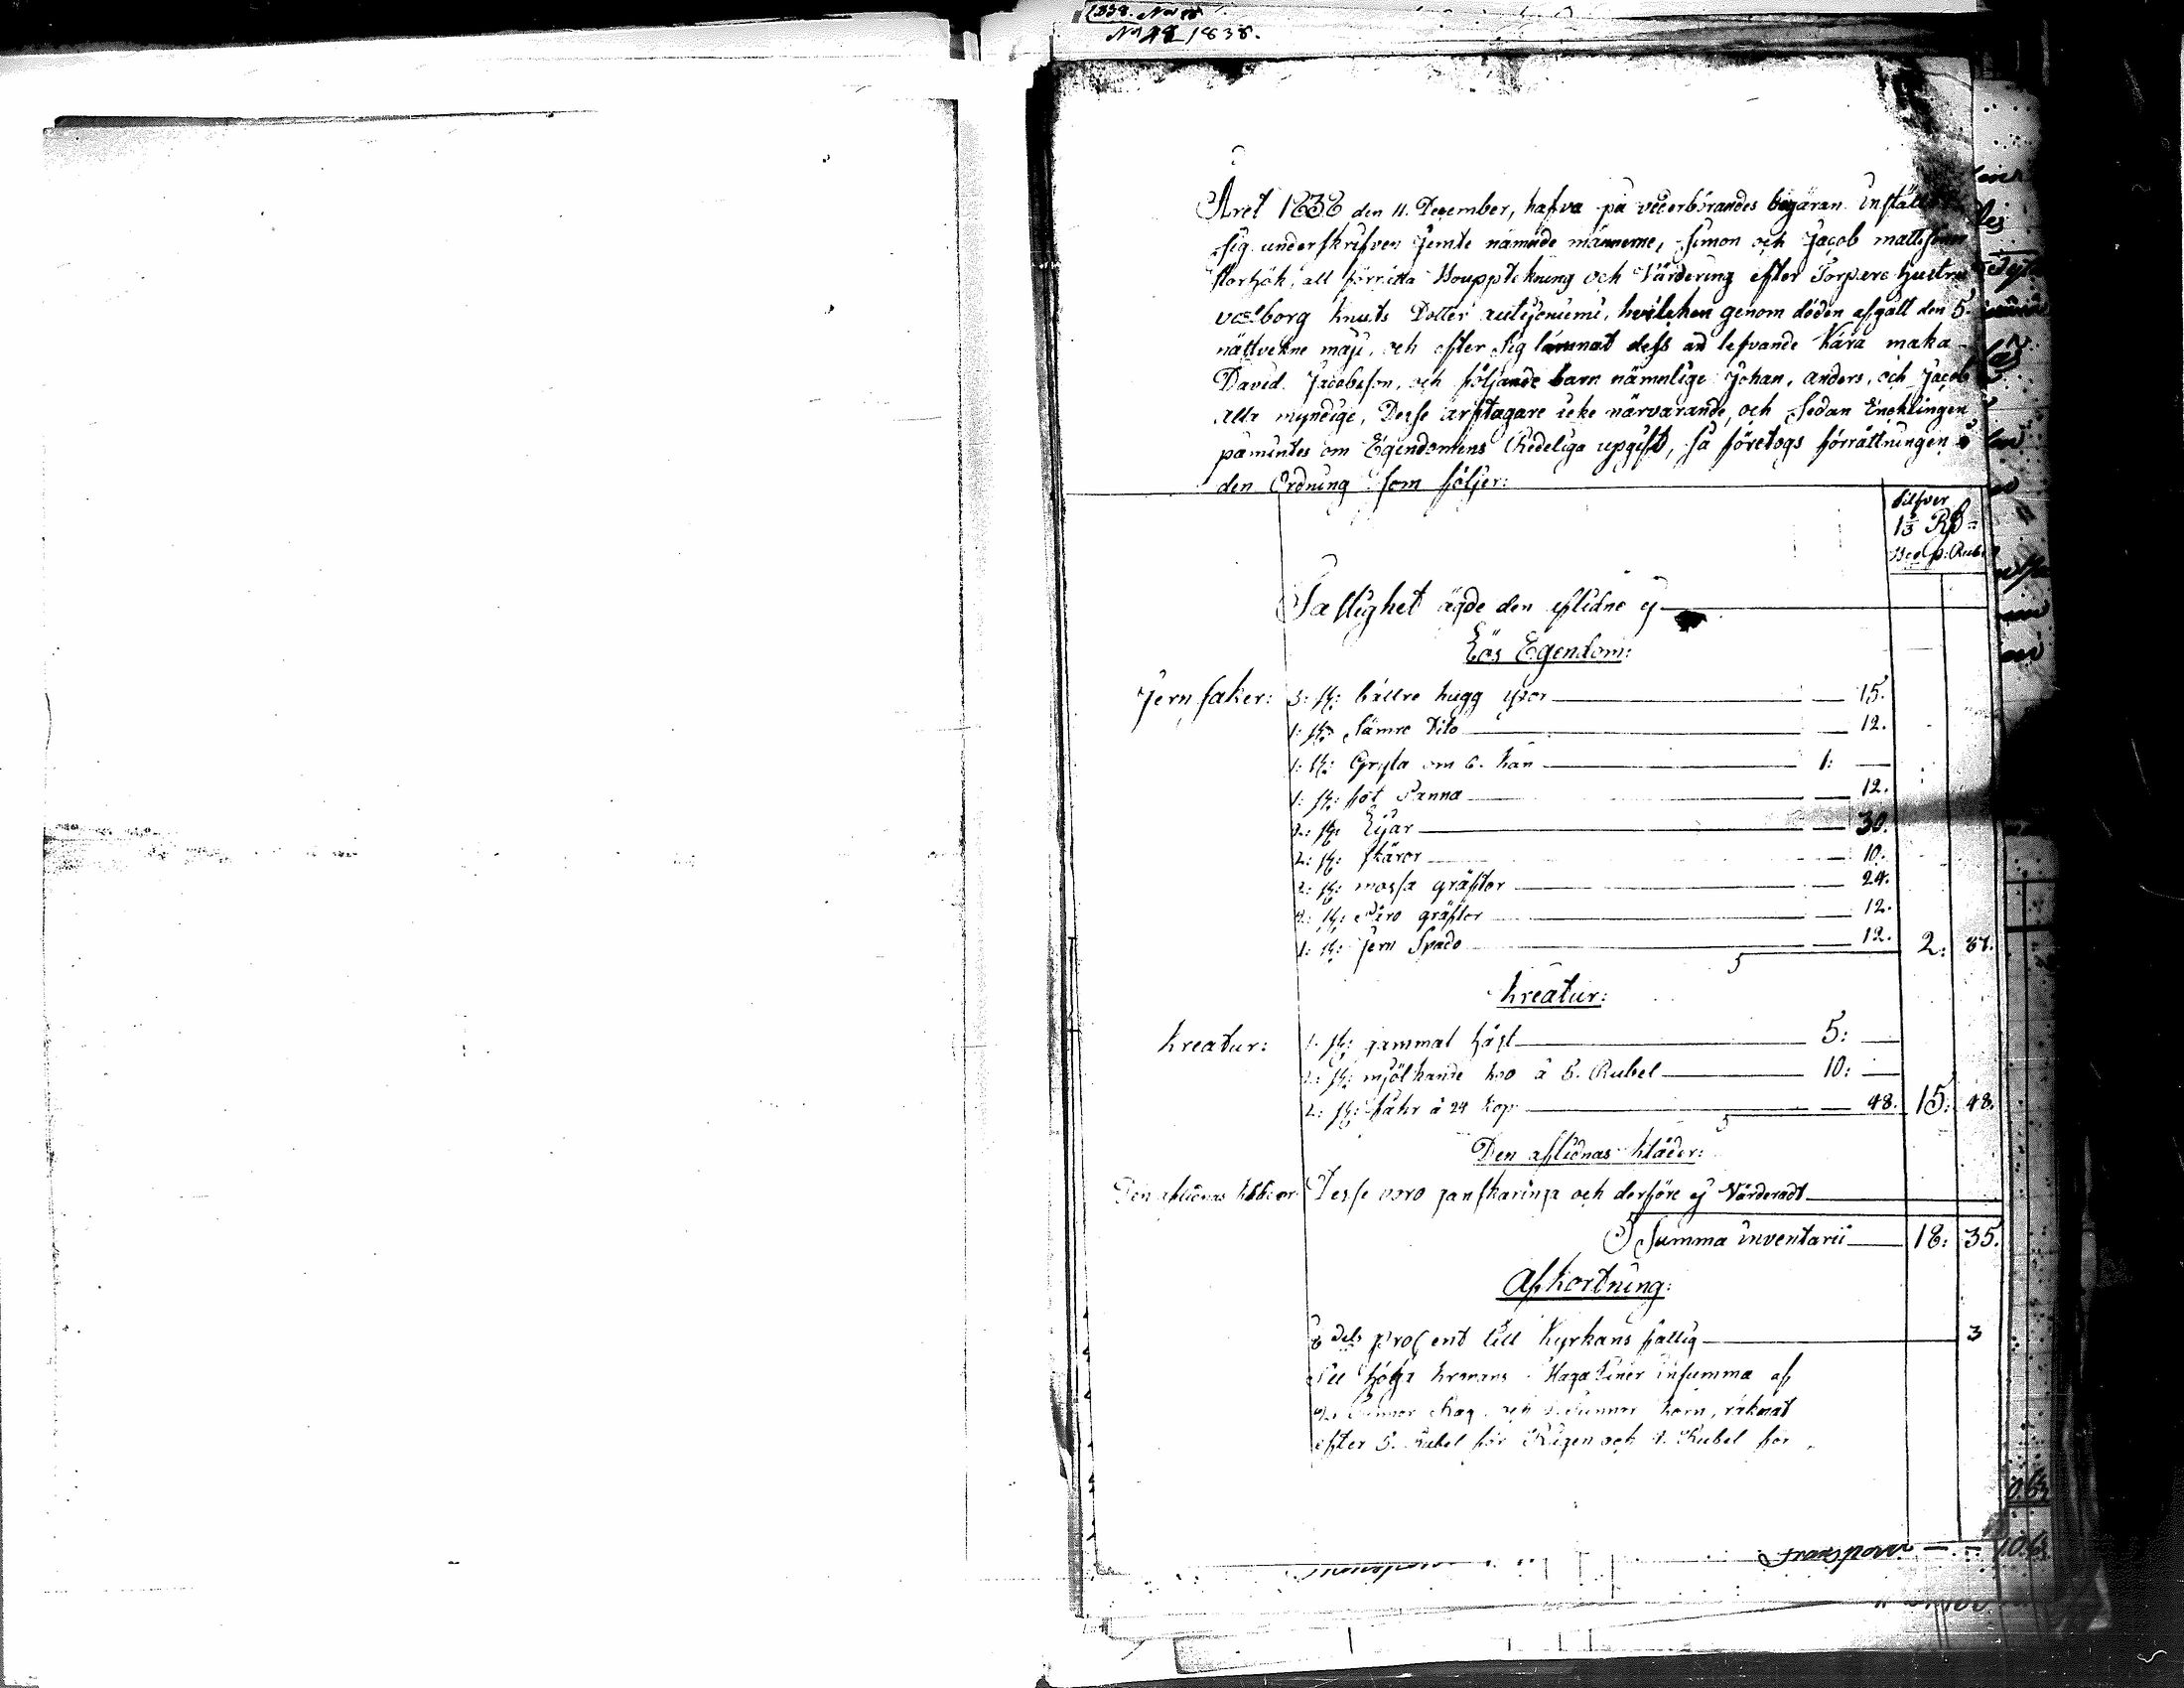 No 48 1838.
Året 1838 den 11. December, hafva på vederbörandes begäran instält
sig underskrifven Jemte nämnde männerne, Simon och Jacob mattsson
storhök, att förrätta Boupptekning och Värdering efter Torpare hustru
valborg knuts Dotter, hvilken genom döden afgått den 5.
nästvekne maji, och efter sig lämnat dess än lefvande Kära maka
David Jacobsson, och följande barn nämnlige Johan, anders, och Jacob
alla myndige, Desse arftagare icke närvarande, och sedan Encklingen
påmintes om Egendomens Redeliga upgift, så företogs förrättningen i
den Ordning som följer:
Silfver
1/3 Rß =
Bco p: Rubel
Fastighet ägde den aflidne ej
Lös Egendom:
Jern saker: 3: st: bättre hugg yxor 15.
1: st: sämre Dito 12.
1: st: Gryta om 6. kan 1:
1: st: fot Panna 12.
st: Lijar 30.
2: st: skäror 10.
2: st: mossa gräftor 24.
st: Päro gräftor 12.
1: st: Jern Spade 12. 2: 87.
Kreatur:
Kreatur: 1: st: gammal häst 5:
2: st: mjölkande ko à 5. Rubel 10:
2: st: fåhr à 24 kop 48. 15: 48.
Den aflidnas kläder:
Den aflidnas kläder Desse voro ganska ringa och derföre ej Värderadt
Summa inventarii 18: 35.
Afkortning:
8 dels procent till Kyrkans fattig 3
Till höga kronans Magasiner insumma af
Tunnor Råg och Tunnor korn, räknat
efter 5. Rubel för Rågen och 4. Rubel för
Transport